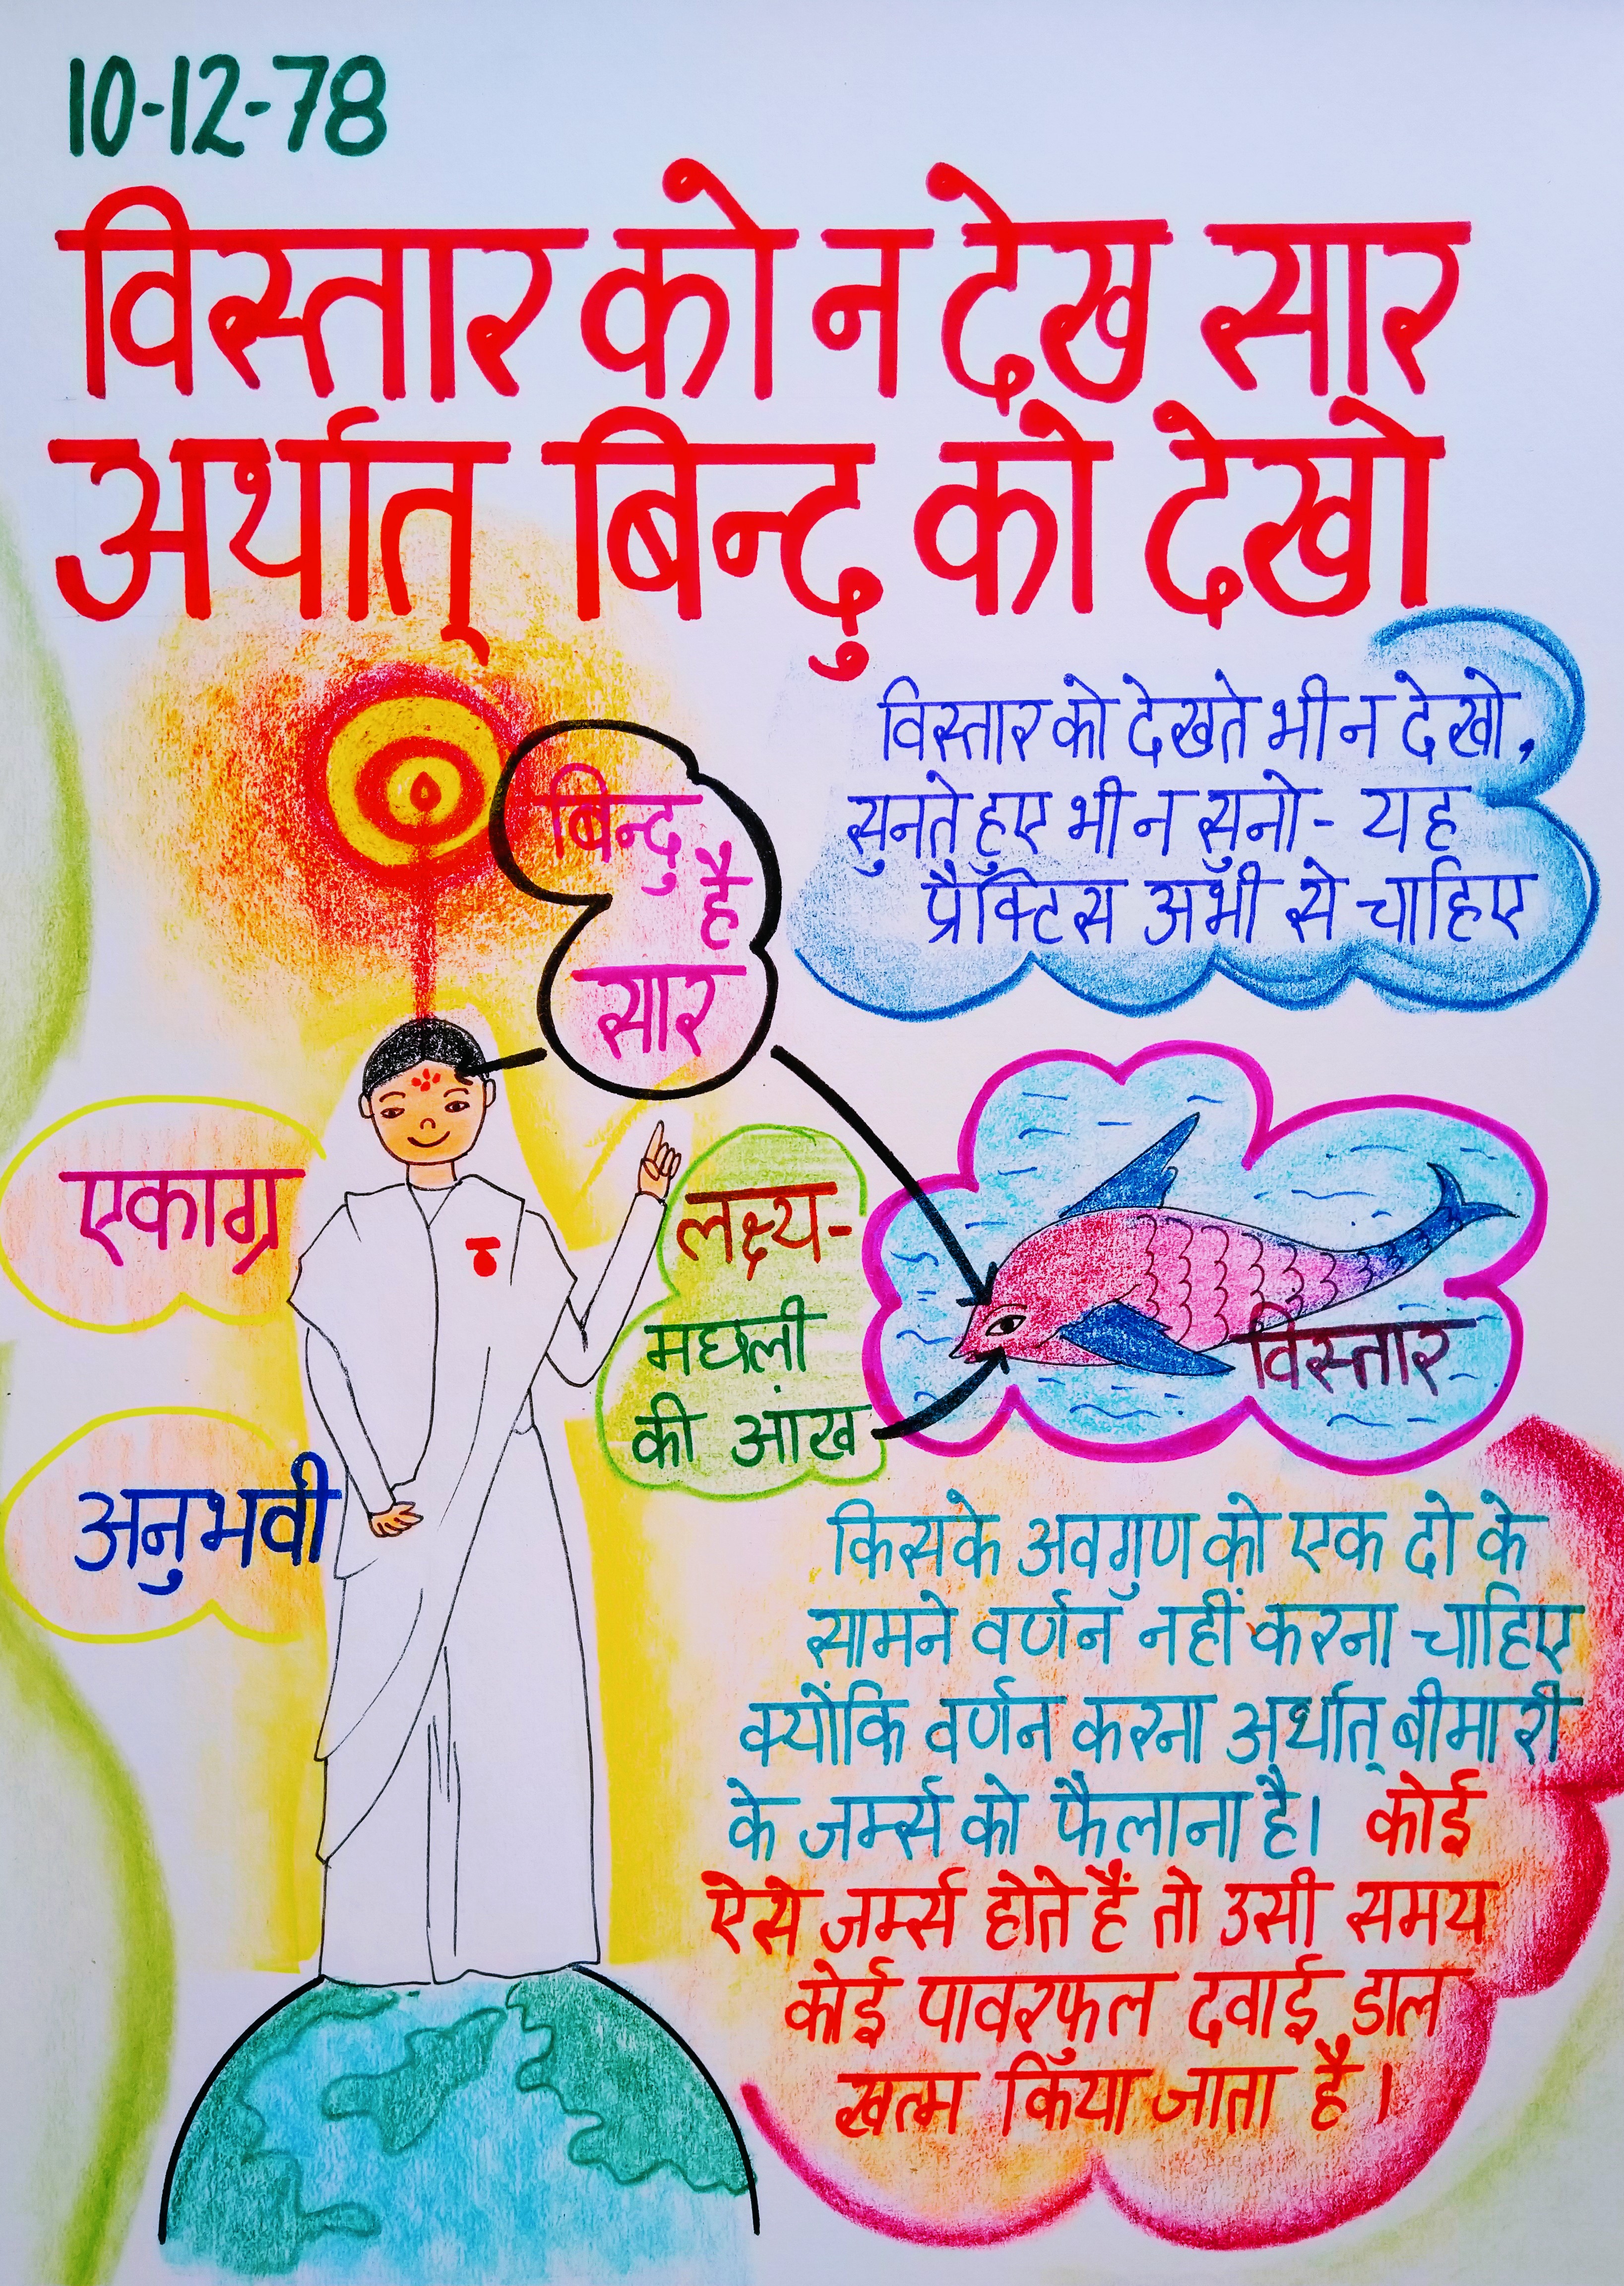 10-12-78
विस्तार को न देख सार
अर्थात् बिन्दु को देखो
विस्तार को देखते भी न देखो,
सुनते हुए भी न सुनो- यह
प्रैक्टिस अभी से चाहिए
बिन्दु
है
सार
एकाग्र
लक्ष्य-
मछली
की आंख
विस्तार
अनुभवी
किसके अवगुण को एक दो के
सामने वर्णन नहीं करना चाहिए
क्योंकि वर्णन करना अर्थात् बीमारी
के जर्म्स को फैलाना है। कोई
ऐसे जर्म्स होते हैं तो उसी समय
कोई पावरफुल दवाई डाल
खत्म किया जाता है।